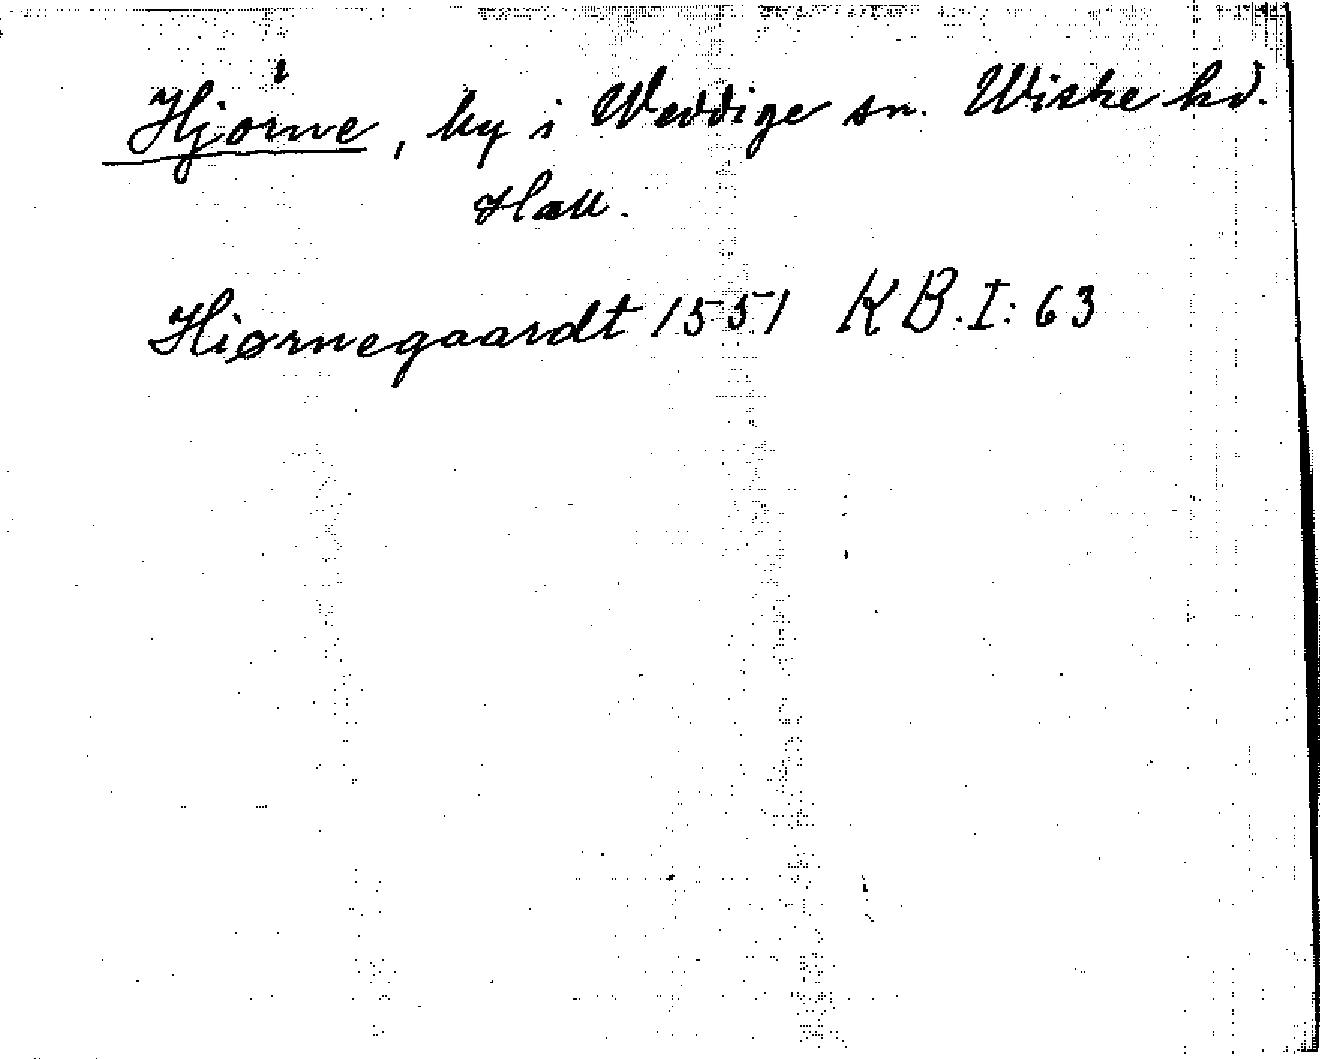 Hjörne, by i Weddige sn. Wiske hd.
Hall.
Hiørnegaardt 1551 KB.I:63